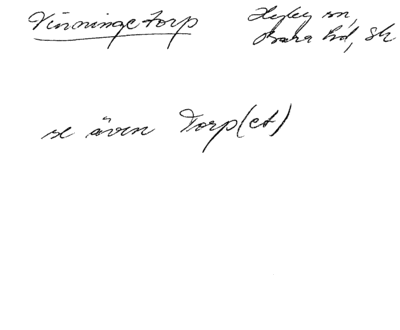 Vinninge torp
Hyby sn,
Bara hd, Sk
se även Torp(et)